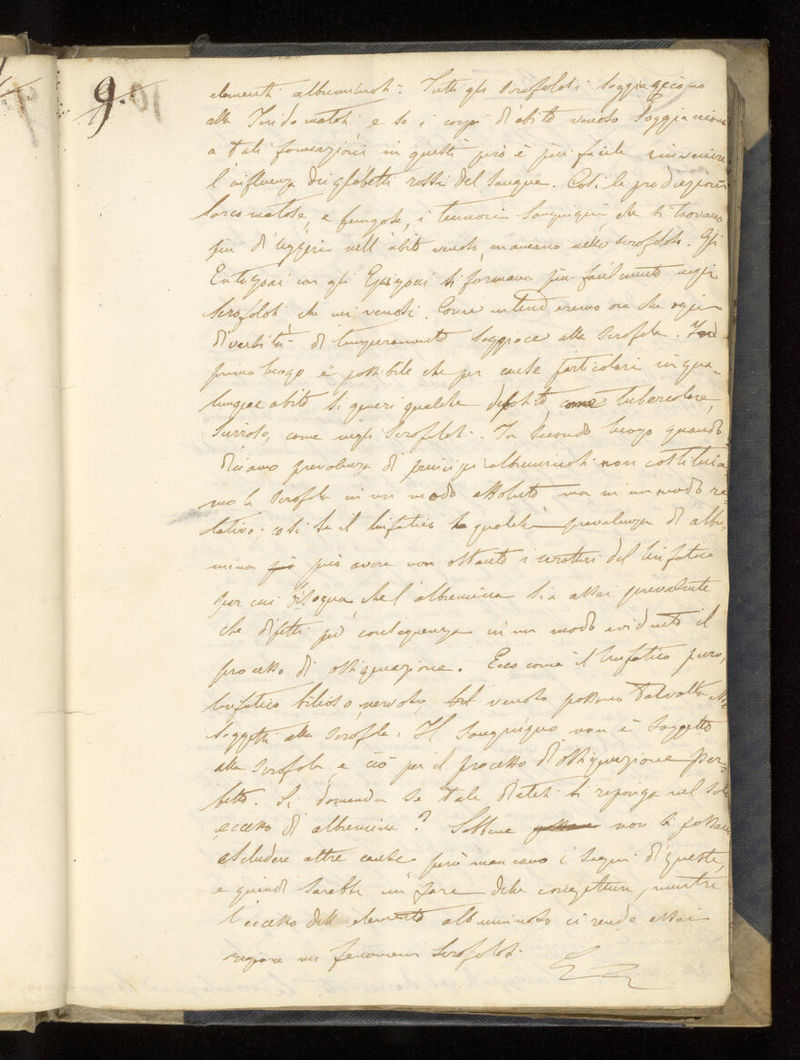 9.
elementi albuminosi. Tutti gli scrofolosi soggiacciono
alle e se i corpi d'abito venoso soggiacciono
a tali formazioni in questi però è più facile rinvenire
l'influenza dei globetti rossi del sangue. Così le produzioni
sarcomatose, e fungose, i tumori sanguigni che si trovano
più di leggeri nell'abito venoso, mancano nello scrofoloso. Gli
Entozoari con gli Epizoari si formano più facilmente negli
scrofolosi che nei venosi. Come intenderemo ora che ogni
diversità di temperamento soggiace alla scrofola. In
primo luogo è possibile che per cause particolari in qua-
lunque abito si generi qualche deposito tubercolare,
scirroso, come negli scrofolosi. In secondo luogo quando
diciamo prevalenza di principi albuminosi non costituia-
mo la scrofola in un modo assoluto ma in un modo re
lativo; così se il linfatico ha qualche prevalenza di albu-
mina può avere non ostante i caratteri del linfatico
per cui bisogna che l'albumina sia assai prevalente
che difetti per conseguenza in un modo evidente il
processo di ossigenazione. Ecco come il linfatico puro,
linfatico bilioso nervoso, bil venoso possano talvolta
soggetti alla scrofola. Il sanguigno non è soggetto
alla scrofola e ciò per il processo di ossigenazione per-
fetto. Si domanda se tale diatesi si riponga nel solo
eccesso di albumina? Sebbene non si possano
escludere altre cause però mancano i segni di queste,
e quindi sarebbe un fare delle congetture, mentre
l'eccesso dell'elemento albuminoso ci rende assai
ragione nei fenomeni scrofolosi.